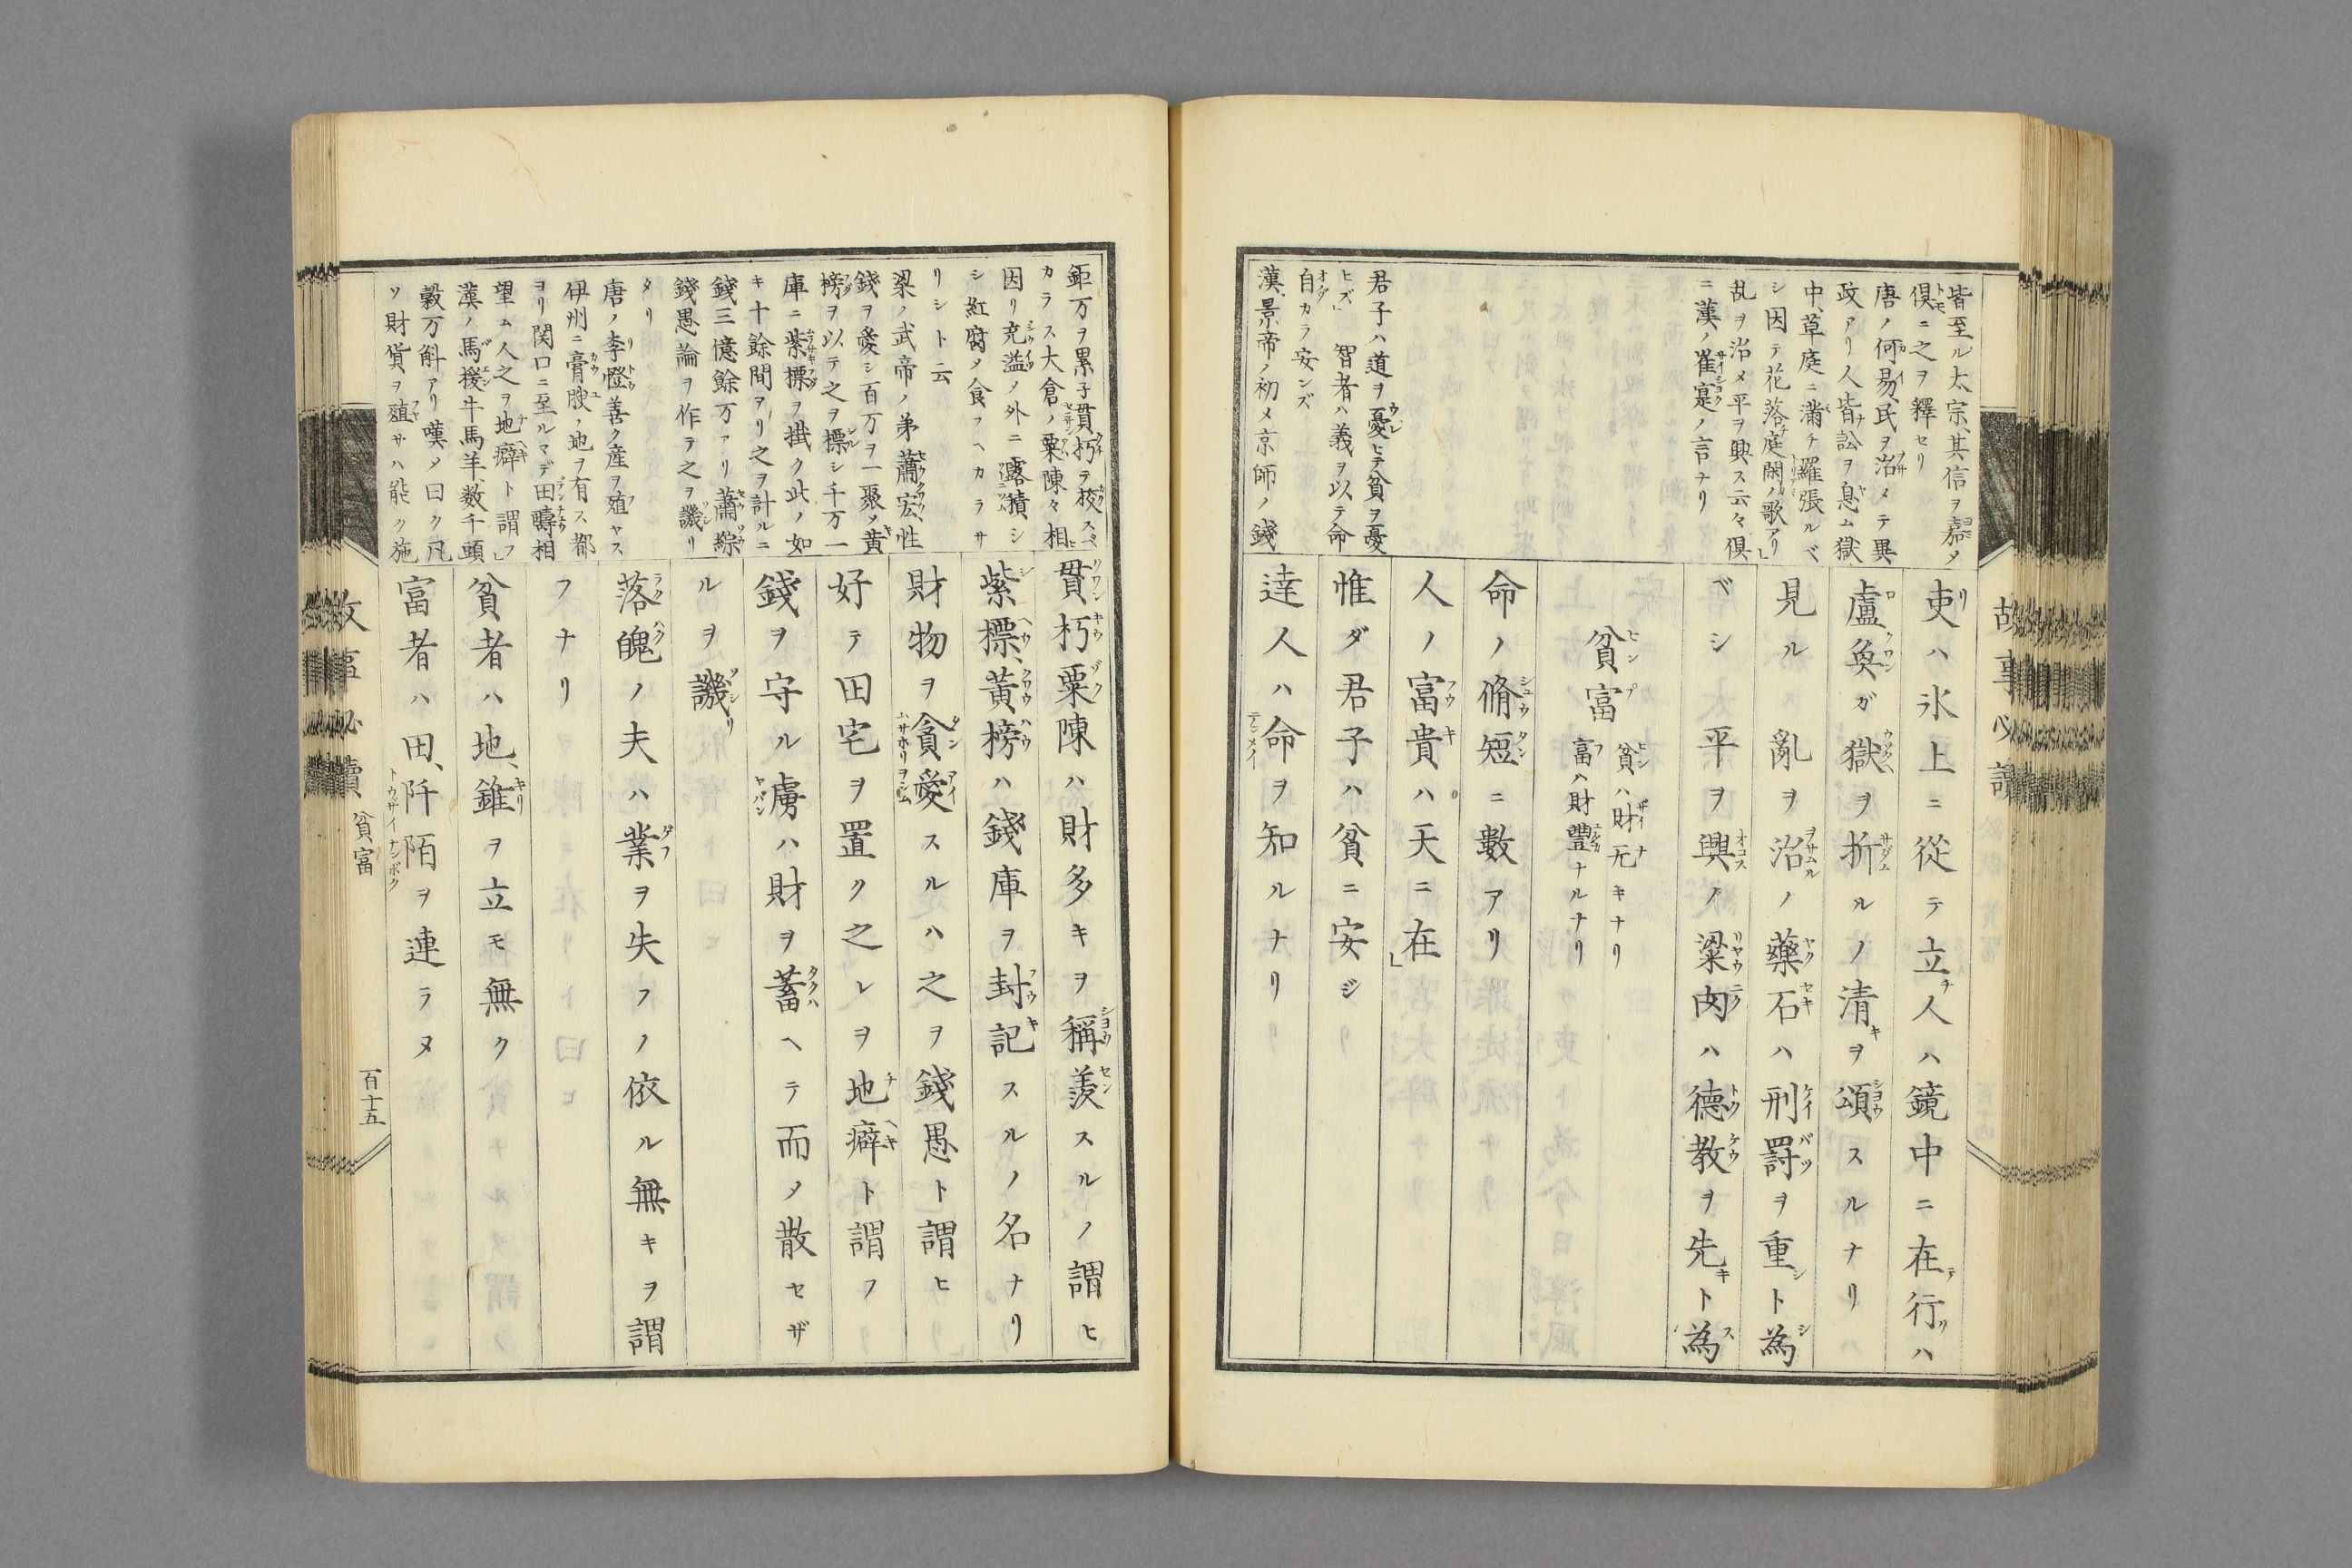 皆至ル太宗其信ヲ嘉メ
倶ニ之ヲ釋セリ
唐ノ何易民ヲ治メテ異
政アリ人皆訟ヲ息ム獄
中草庭ニ滿チ羅張ルベ
シ因テ花落庭閑ノ歌アリ」
乱ヲ治メ平ヲ興ス云々倶
ニ漢ノ崔寔ノ言ナリ
君子ハ道ヲ憂ヒテ貧ヲ憂
ヒズ」智者ハ義ヲ以テ命
自カラ安ンズ
漢景帝ノ初メ京師ノ錢
吏ハ氷上ニ從テ立チ人ハ鏡中ニ在テ行クハ
盧奐ガ獄ヲ折ルノ清キヲ頌スルナリ
見ル亂ヲ治ノ藥石ハ刑罸ヲ重シト為シ
ベシ平ヲ興ノ梁肉ハ德教ヲ先キト為ス
貧富
貧ハ財无キナリ
富ハ財豐ナルナリ
命ノ脩短ニ數アリ
人ノ富貴ハ天ニ在」
惟ダ君子ハ貧ニ安ジ
達人ハ命ヲ知ルナリ
鉅万ヲ累子貫朽ラ校スベ
カラス大倉ノ粟陳々相
因リ充溢ノ外ニ露積シ
シ紅腐メ食フヘカラサ
リシト云
梁ノ武帝ノ弟蕭宏性
錢ヲ愛シ百万ヲ一聚メ黄
榜ヲ以テ之ヲ標シ千万一
庫ニ紫標ヲ掛ク此ノ如
キ十餘間アリ之ヲ計ルニ
錢三億餘万アリ蕭綜
錢愚論ヲ作テ之ヲ譏リ
タリ
唐ノ李憕善ク産ヲ殖ヤス
伊州ニ膏腴ノ地ヲ有ス都
ヨリ関口ニ至ルマデ田疇相
望ム人之ヲ地癖ト謂フ」
漢ノ馬援牛馬羊数千頭
穀万斛アリ嘆メ曰ク凡
ソ財貨ヲ殖サハ能ク施
貫朽粟陳ハ財多キヲ稱羨スルノ謂ヒ
紫標黃榜ハ錢庫ヲ封記スルノ名ナリ
財物ヲ貪愛スルハ之ヲ錢愚ト謂ヒ
好テ田宅ヲ置ク之レヲ地癖ト謂フ
錢ヲ守ル虜ハ財ヲ蓄ヘテ而メ散セザ
ルヲ譏リ
落魄ノ夫ハ業ヲ失フノ依ル無キヲ謂
フナリ
貧者ハ地錐ヲ立モ無ク
富者ハ田阡陌ヲ連ラヌ
貧富
百十五